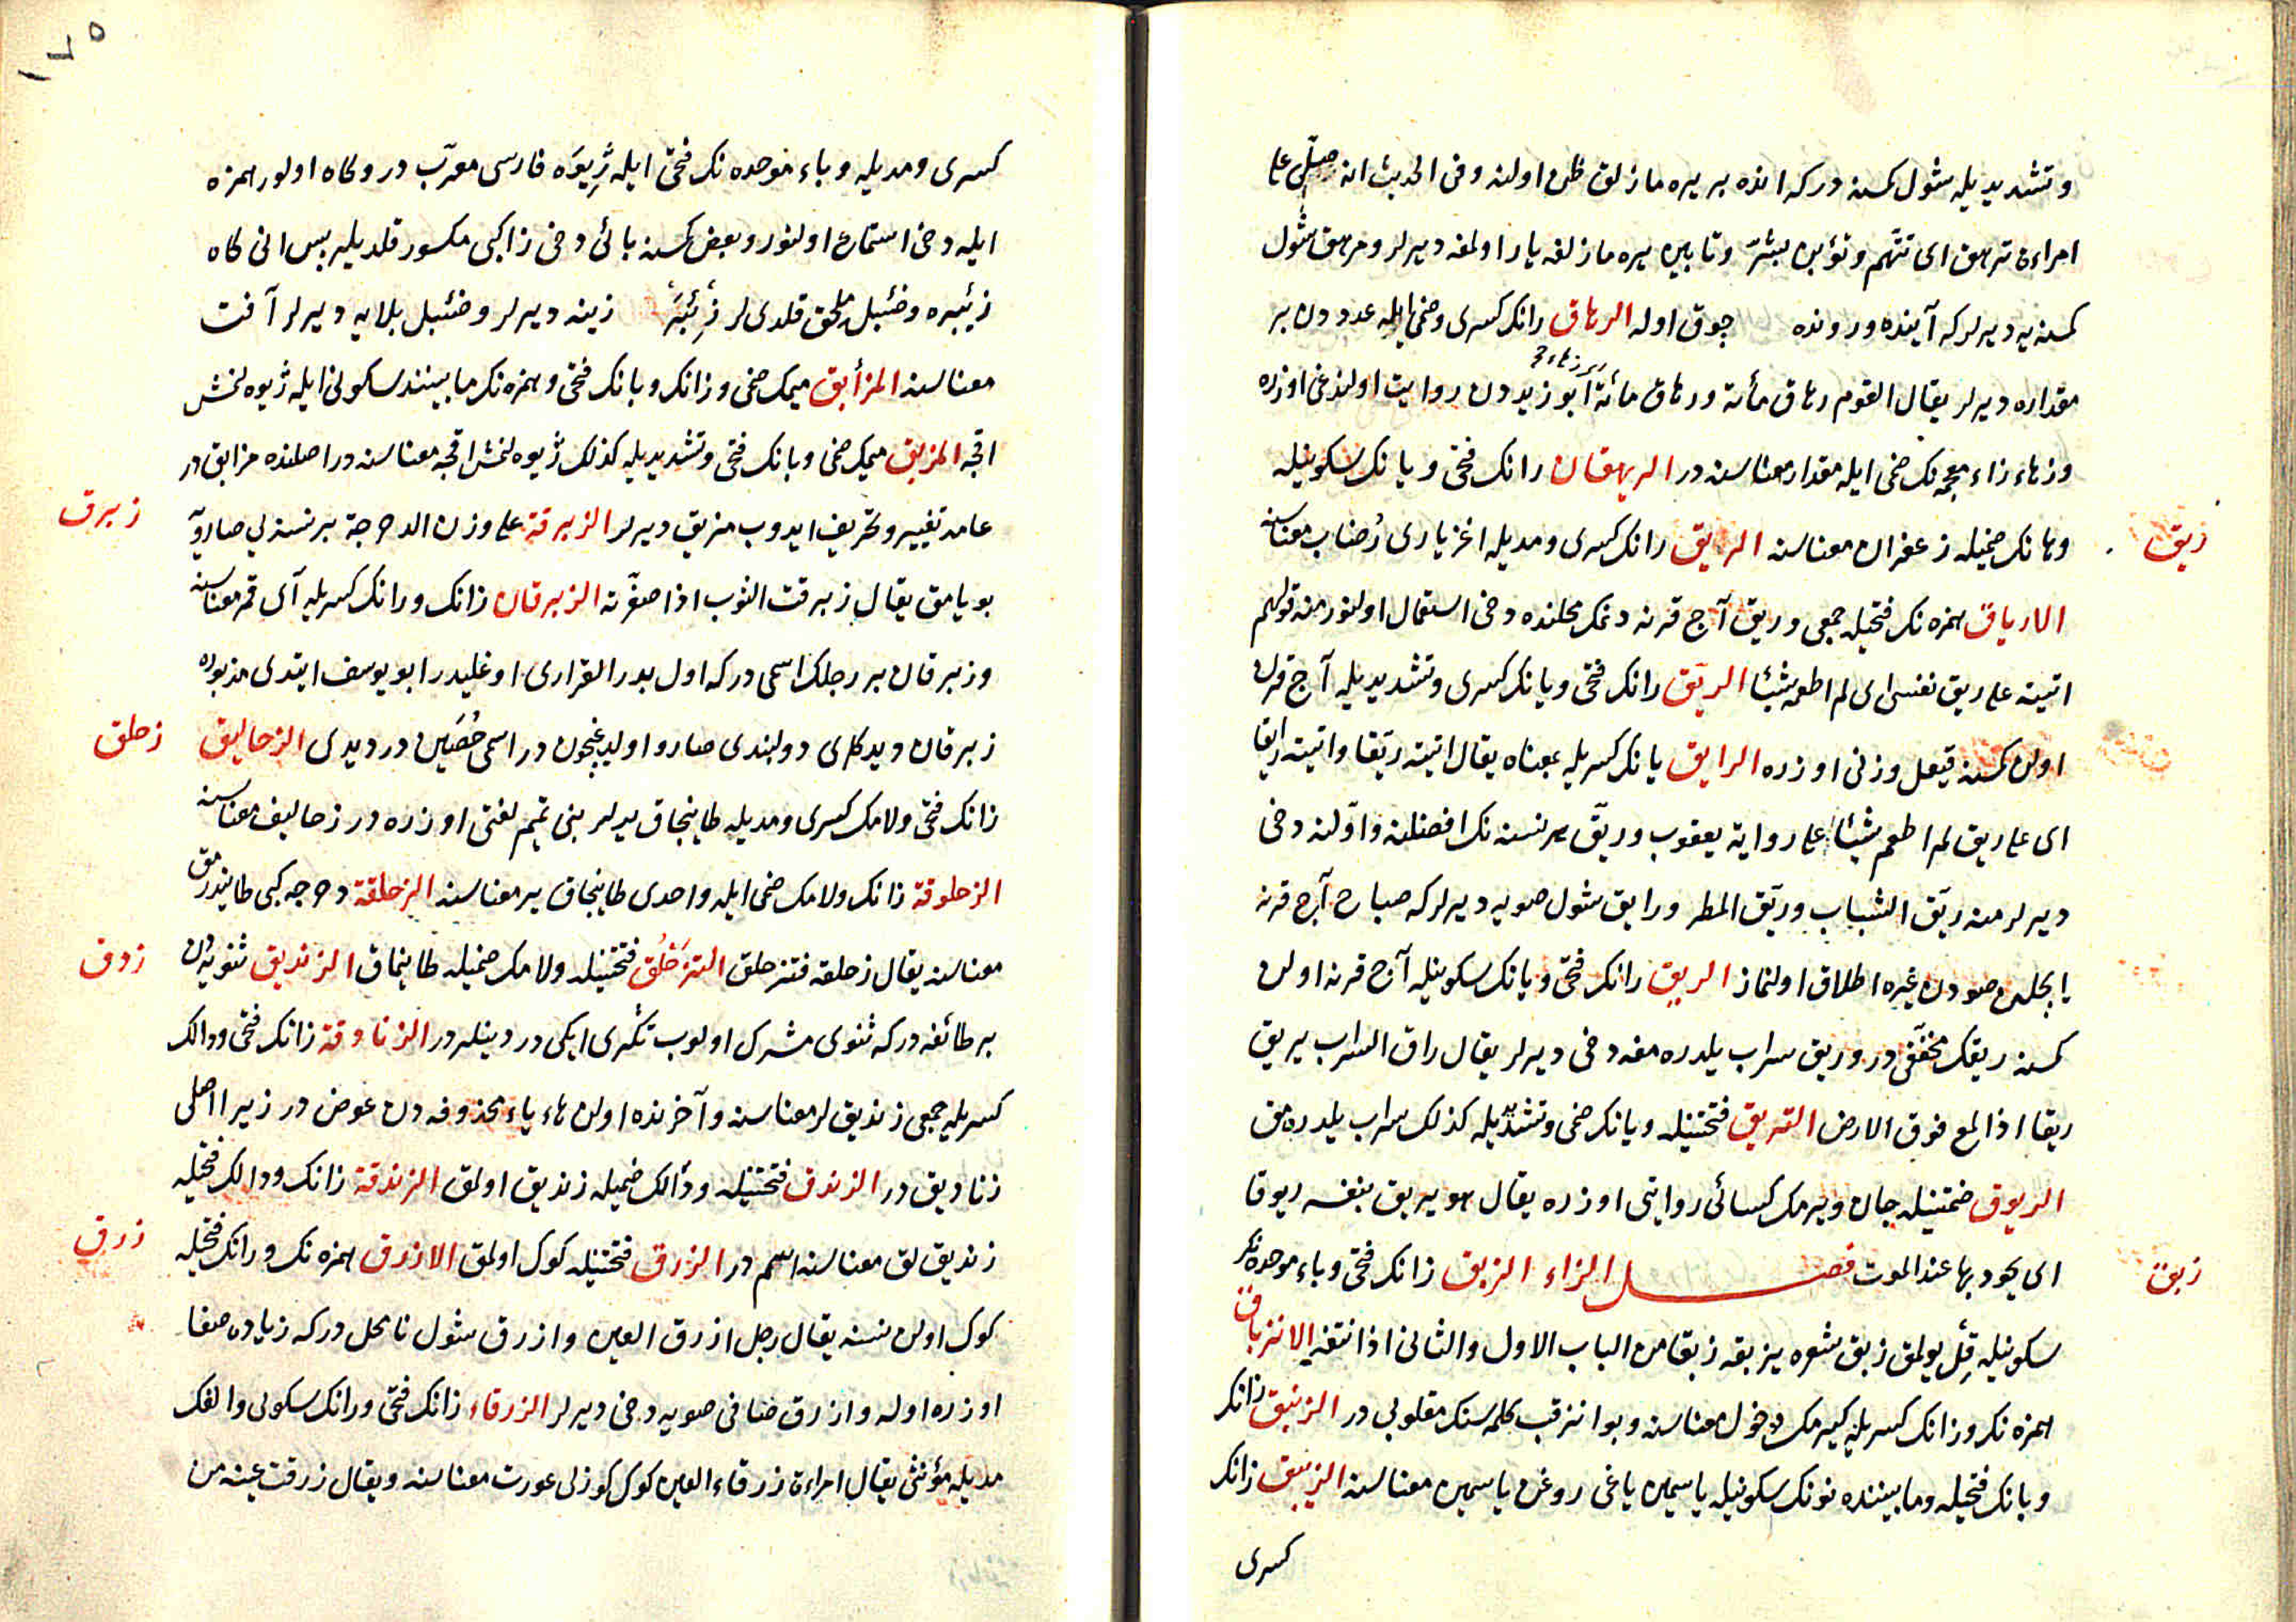 وتشديديله شول كمسنه دركه انده بر يره مازلق ظن اولنه وفى الحديث انه صلى على
امراءة ترهق اى تتهم وتؤبن بشر وتأبين يره مازلغه يارا ولمغه ديرلر ومرهق شول
كمسنه يه ديرلر كه آينده ورونده چوق اوله الرهاق رانك كسرى وضمى ايله عدددن بر
مقداره ديرلر يقال القوم رهاق مائة ورهاق مائة ابو زيددن روايت اولندغى اوزره
وزهاء زاء معجمه نك ضمى ايله مقدار معناسنه در الريهقان رانك فتحى ويانك سكونيله
وهانك ضميله زعفران معناسنه الريق رانك كسرى ومديله اغز يارى رضاب معناسنه
ريق
الارياق همزه نك فتحيله جمعى وريق آج قرنه دمك محلنده دخى استعمال اولنور منه قولهم
اتيته على ريق نفسى اى لم اطعم شيئا الريق رانك فتحى ويانك كسرى وتشديديله آج قرن
اولن كمسنه فيعل وزنى اوزره الرايق يانك كسريله بمعناه يقال اتيته ريقا واتيته رايقا
اى على ريق لم اطعم شيئا على رواية يعقوب وريق هر نسنه نك افضلنه واولنه دخى
ديرلر منه ريق الشباب وريق المطر ورايق شول صويه ديرلر كه صباح آج قرنه
ايچلن صودن غيره اطلاق اولنماز الريق رانك فتحى ويانك سكونيله آج قرنه اولن
كمسنه ريقك مخففى در وريق سراب يلدره مغه دخى ديرلر يقال راق السراب يريق
ريقا اذا لمع فوق الارض التريق فتحتنيله ويانك ضمى وتشديديله كذلك سراب يلدره مق
الريوق ضمتنيله جان ويرمك كسائى روايتى اوزره يقال هو يريق بنفسه ريوقا
اى يجود بها عند الموت فصل الزاء الزبق زانك فتحى وباء موحده نك
زبق
سكونيله قل يولمق زبق شعره يزبقه زبقا من الباب الاول والثانى اذا نتفه الانزباق
همزه نك وزانك كسريله كيرمك دخول معناسنه وبو انزقب كلمه سنك مقلوبى در الزنبق زانك
وبانك فتحيله ومابيننده نونك سكونيله ياسمين ياغى روغن ياسمين معناسنه الزيبق زانك
كسرى
١٧٥
كسرى ومديله وباء موحده نك فتحى ايله ژيوه فارسى معرب در وكاه اولور همزه
ايله دخى استماع اولنور وبعض كسنه بائى دخى زا كبى مكسور قلديلر پس انى كاه
زئبره وضئبل ملحق قلدى لر زئبر زينه ديرلر وضئبل بلايه ديرلر آفت
معناسنه المزأبق ميمك ضمى وزانك وبانك فتحى وهمزه نك مابيننده سكونى ايله ژيوه لنمش
اقچه المزبق ميمك ضمى وبانك فتحى وتشديديله كذلك ژيوه لنمش اقچه معناسنه در اصلنده مزابق در
عامه تغيير وتحريف ايدوب مزبق ديرلر الزبرقة على وزن الدحرجة بر نسنه يى صارويه
زبرق
بويامق يقال زبرقت الثوب اذا صفرته الزبرقان زانك ورانك كسريله آى قمر معناسنه
وزبرقان بر رجلك اسمى در كه اول بدر الفزارى اوغليدر ابو يوسف ايتدى مزبوره
زبرقان ديدكلرى دولبندى صارو اولديغيچون در اسمى حصين در ديدى الزحاليق
زحلق
زانك فتحى ولامك كسرى ومديله طاينجاق يرلر بنى تميم لغتى اوزره در زحاليف معناسنه
الزحلوقة زانك ولامك ضمى ايله واحدى طاينجاق ير معناسنه الزحلقة دحرجه كبى طايندرمق
معناسنه يقال زحلقه فتزحلق التزحلق فتحتنيله ولامك ضميله طاينماق الزنديق ثنويه دن
زدق
بر طائفه در كه ثنوى مشرك اولوب تكرى ايكى در دينلردر الزنادقة زانك فتحى ودالك
كسريله جمعى زنديقلر معناسنه وآخرنده اولن هاء ياء محذوفه دن عوض در زيرا اصلى
زناديق در الزندق فتحتنيله ودالك ضميله زنديق اولمق الزندقة زانك ودالك فتحيله
زنديقلق معناسنه اسم در الزرق فتحتنيله كوك اولمق الازرق همزه نك ورانك فتحيله
زرق
كوك اولن نسنه يقال رجل ازرق العين وازرق شول نا محل در كه زياده صفا
اوزره اوله وازرق صافى صويه دخى ديرلر الزرقاء زانك فتحى ورانك سكونى والفك
مديله مؤنثى يقال امراءة زرقاء العين كوك كوزلى عورت معناسنه ويقال زرقت عينه من